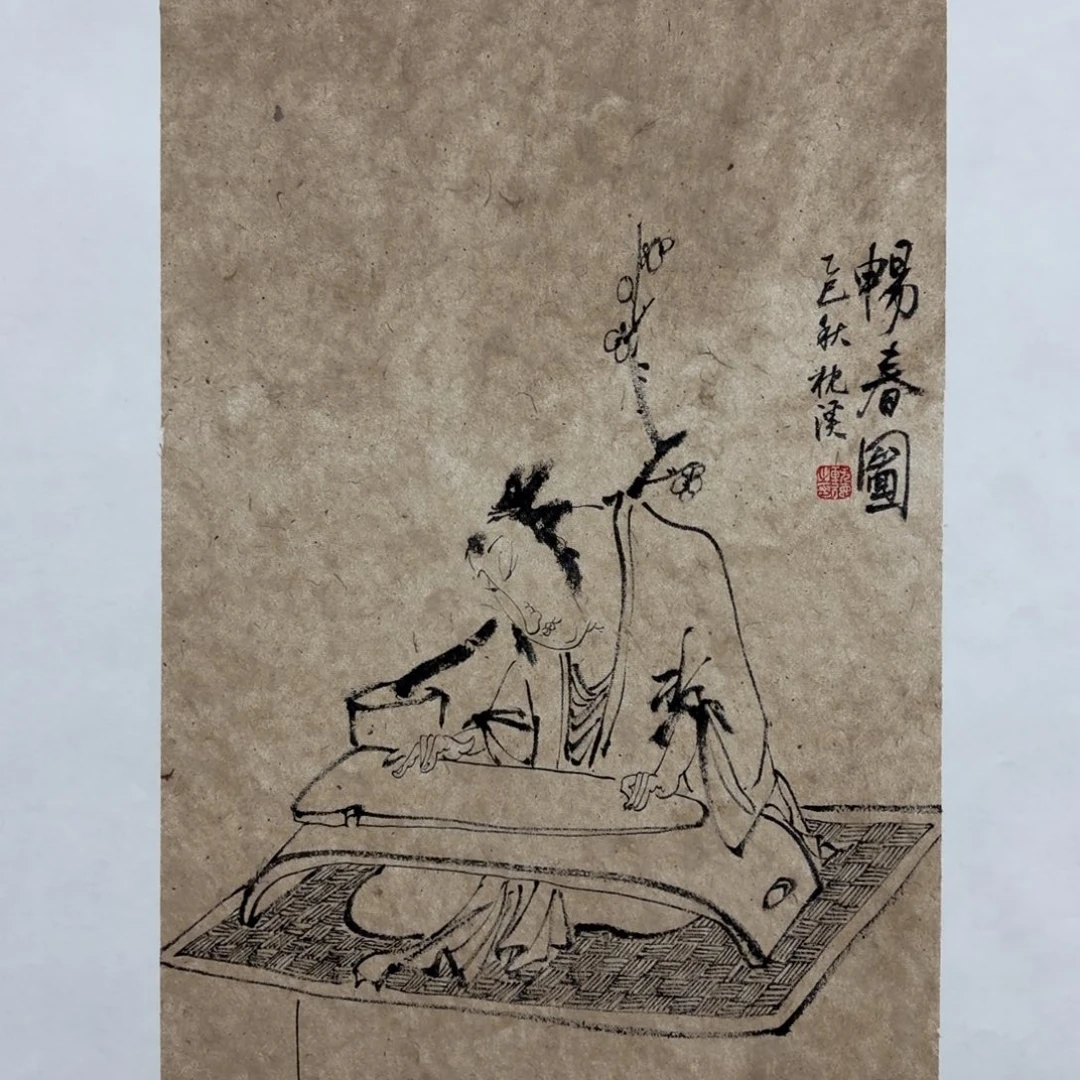 暢春圖
乙巳秋枕溪